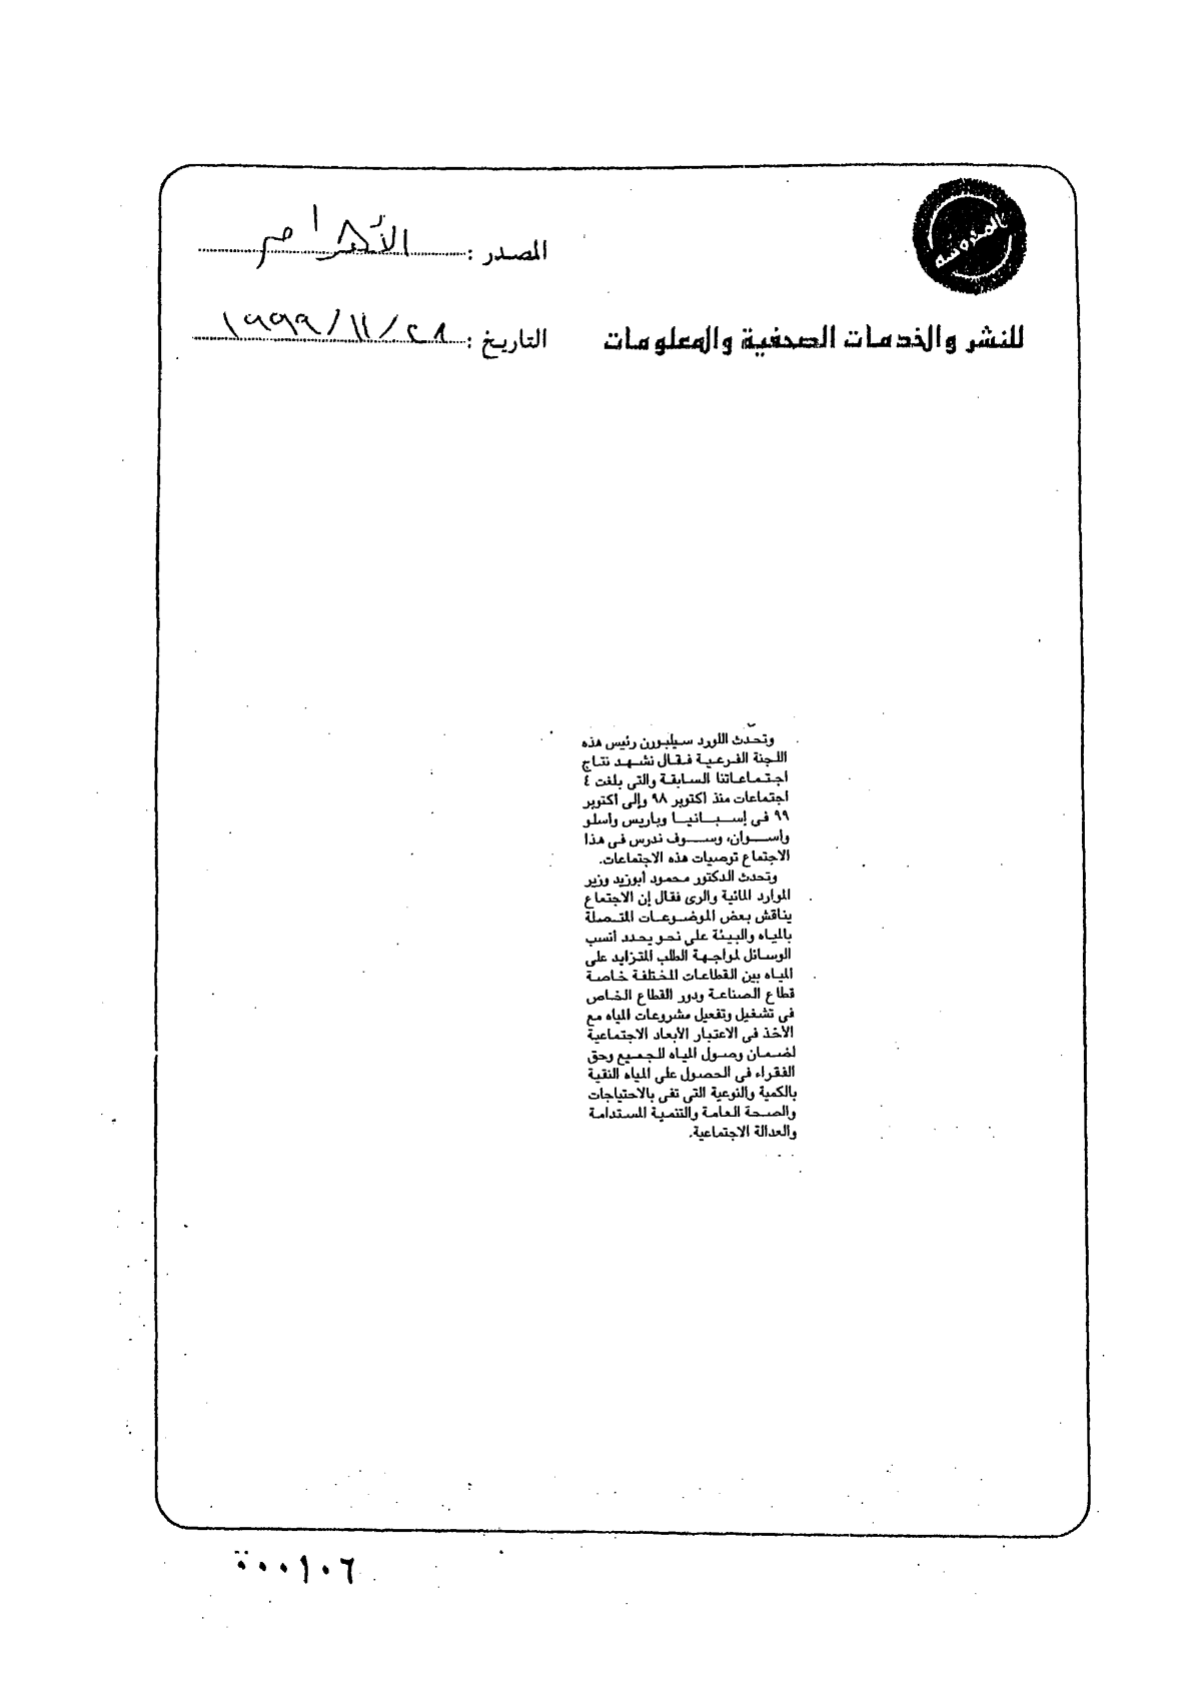 المصدر : الأهرام
التاريخ : ٢٨/١١/١٩٩٩
المحروسة
للنشر والخدمات الصحفية والمعلومات
وتحدث اللورد سيلبورن رئيس هذه
اللجنة الفرعية فقال نشهد نتاج
اجتماعاتنا السابقة والتى بلغت ٤
اجتماعات منذ اكتوبر ٩٨ وإلى اكتوبر
٩٩ فى إسبانيا وباريس واسلو
واسوان، وسوف ندرس فى هذا
الاجتماع توصيات هذه الاجتماعات.
وتحدث الدكتور محمود أبوزيد وزير
الموارد المائية والرى فقال إن الاجتماع
يناقش بعض الموضوعات المتصلة
بالمياه والبيئة على نحو يحدد انسب
الوسائل لمواجهة الطلب المتزايد على
المياه بين القطاعات المختلفة خاصة
قطاع الصناعة ودور القطاع الخاص
فى تشغيل وتفعيل مشروعات المياه مع
الأخذ فى الاعتبار الأبعاد الاجتماعية
لضمان وصول المياه للجميع وحق
الفقراء فى الحصول على المياه النقية
بالكمية والنوعية التى تفى بالاحتياجات
والصحة العامة والتنمية المستدامة
والعدالة الاجتماعية.
٠٠٠١٠٦